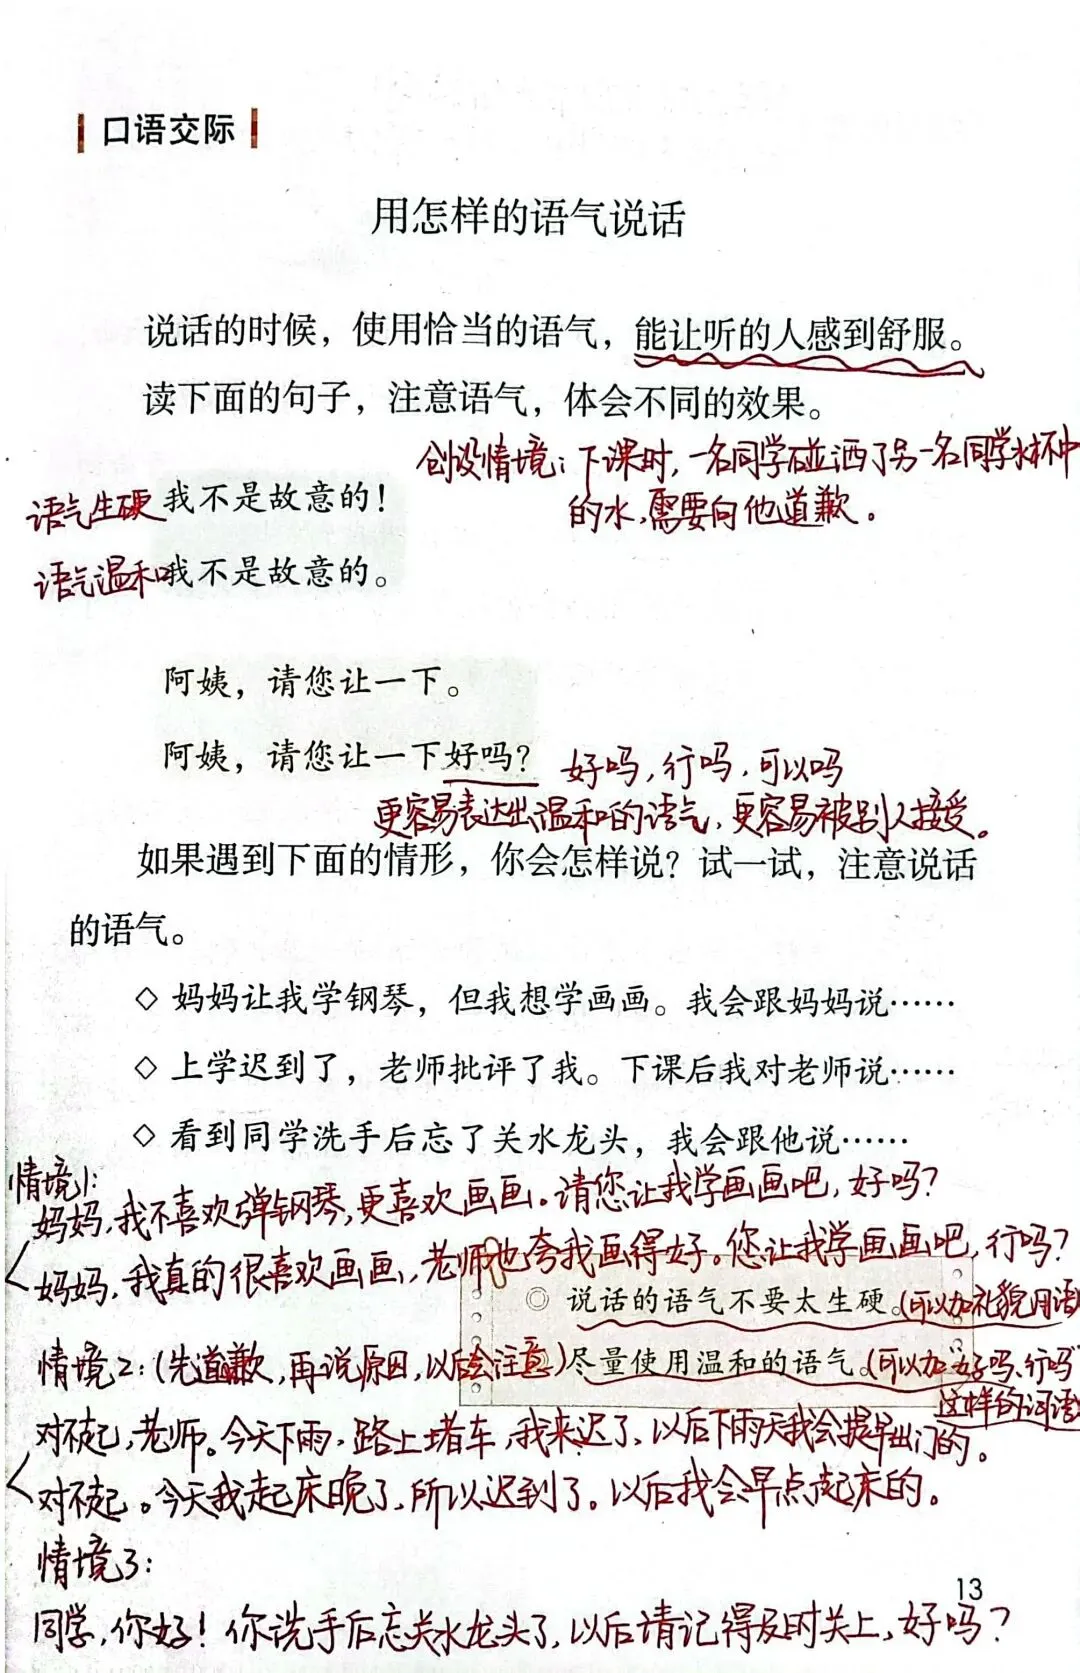 口语交际
用怎样的语气说话
说话的时候，使用恰当的语气，能让听的人感到舒服。
读下面的句子，注意语气，体会不同的效果。
创设情境：下课时，一名同学碰洒了另一名同学水杯中
的水，需要向他道歉。
语气生硬 我不是故意的！
语气温和 我不是故意的。
阿姨，请您让一下。
阿姨，请您让一下好吗？ 好吗，行吗，可以吗
更容易表达出温和的语气，更容易被别人接受。
如果遇到下面的情形，你会怎样说？试一试，注意说话
的语气。
◇ 妈妈让我学钢琴，但我想学画画。我会跟妈妈说……
◇ 上学迟到了，老师批评了我。下课后我对老师说……
◇ 看到同学洗手后忘了关水龙头，我会跟他说……
情境1：
妈妈，我不喜欢弹钢琴，更喜欢画画。请您让我学画画吧，好吗？
妈妈，我真的很喜欢画画，老师也夸我画得好。您让我学画画吧，行吗？
◎ 说话的语气不要太生硬。（可以加礼貌用语）
情境2：（先道歉，再说原因，以后会注意）
尽量使用温和的语气。（可以加"好吗、行吗"
这样的词语）
对不起，老师。今天下雨，路上堵车，我来迟了，以后下雨天我会提早出门的。
对不起。今天我起床晚了，所以迟到了。以后我会早点起来的。
情境3：
同学，你好！你洗手后忘关水龙头了，以后请记得及时关上，好吗？
13